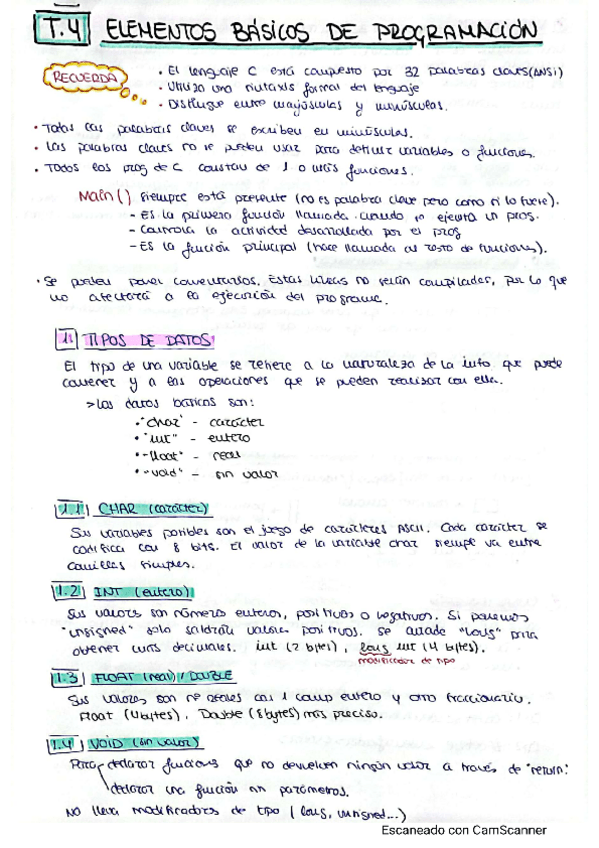 T.4 ELEMENTOS BÁSICOS DE PROGRAMACIÓN
RECUERDA
• El lenguaje C está compuesto por 32 palabras claves (ANSI)
• Utiliza una sintaxis formal del lenguaje
• Distingue entre mayúsculas y minúsculas.
• Todas las palabras claves se escriben en minúsculas.
• Las palabras claves no se pueden usar para definir variables o funciones.
• Todos los prog de C constan de 1 o más funciones.
Main() siempre está presente (no es palabra clave pero como si lo fuera).
- Es la primera función llamada cuando se ejecuta un prog.
- Controla la actividad desarrollada por el prog
- Es la función principal (hace llamada al resto de funciones).
• Se pueden poner comentarios. Estas líneas no serán compiladas, por lo que
no afectará a la ejecución del programa.
1. TIPOS DE DATOS
El tipo de una variable se refiere a la naturaleza de la info que puede
contener y a las operaciones que se pueden realizar con ella.
> Los datos básicos son:
• "char" - carácter
• "int" - entero
• "float" - real
• "void" - sin valor
1.1 CHAR (carácter)
Sus variables posibles son el juego de carácteres ASCII. Cada carácter se
codifica con 8 bits. El valor de la variable char siempre va entre
comillas simples.
1.2 INT (entero)
Sus valores son números enteros, positivos o negativos. Si ponemos
"unsigned" solo saldrán valores positivos. Se añade "long" para
obtener más decimales. int (2 bytes), long int (4 bytes).
modificador de tipo
1.3 FLOAT (real) / DOUBLE
Sus valores son nº reales con 1 comp entero y otro fraccionario.
Float (4 bytes). Double (8 bytes) más preciso.
1.4 VOID (sin valor)
Para declarar funciones que no devuelven ningún valor a través de "return".
declarar una función sin parámetros.
No lleva modificadores de tipo (long, unsigned...)
Escaneado con CamScanner